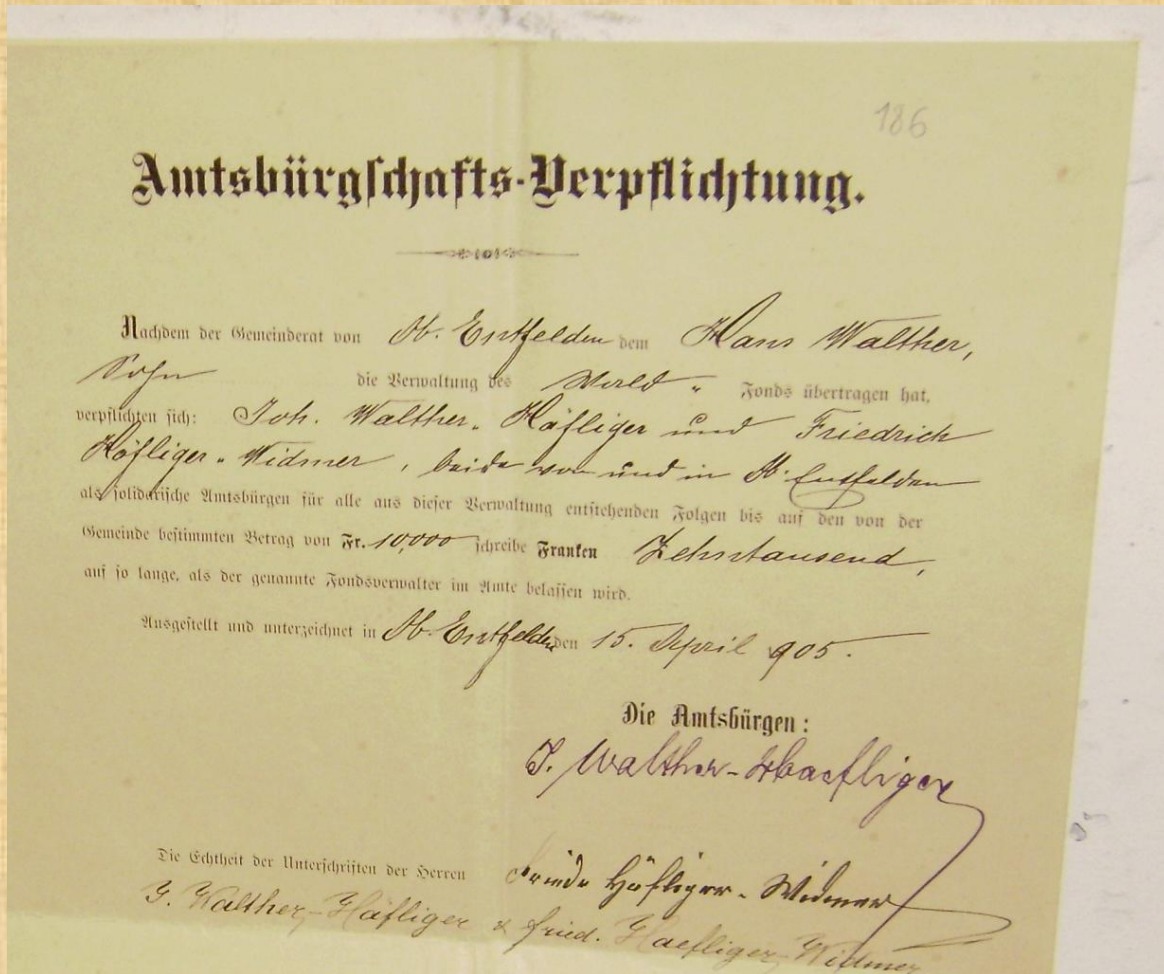 186
Amtsbürgschafts-Verpflichtung.
Nachdem der Gemeinderat von Ob. Entfelden dem Hans Walther,
Sohn die Verwaltung des Fonds übertragen hat,
verpflichten sich: Joh. Walther-Häfliger und Friedrich
Häfliger-Widmer, beide von und in Ob. Entfelden
als solidarische Amtsbürgen für alle aus dieser Verwaltung entstehenden Folgen bis auf den von der
Gemeinde bestimmten Betrag von Fr. 10,000 schreibe Franken Zehntausend,
auf so lange, als der genannte Fondsverwalter im Amte belassen wird.
Ausgestellt und unterzeichnet in Ob. Entfelden den 15. April 905.
Die Amtsbürgen:
J. Walther-Haefliger
Die Echtheit der Unterschriften der Herren
Häfliger-Widmer
J. Walther-Häfliger & Fried. Haefliger-Widmer